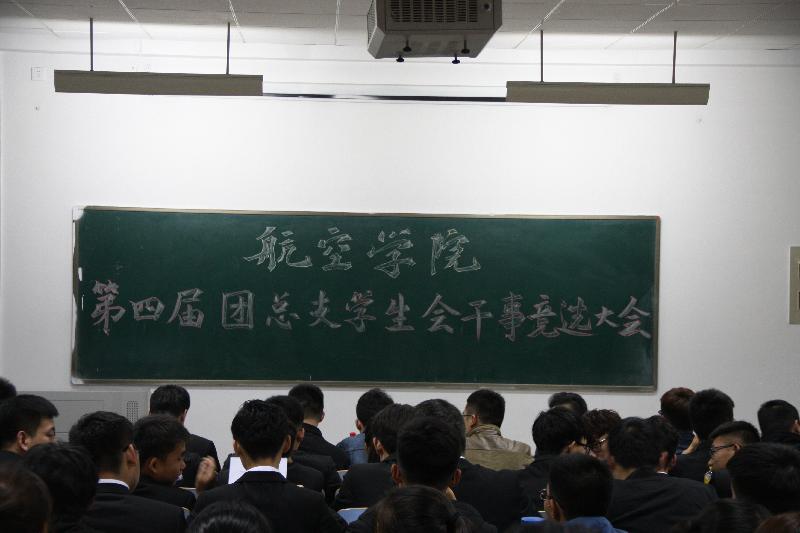 航空学院
第四届团总支学生会干事竞选大会